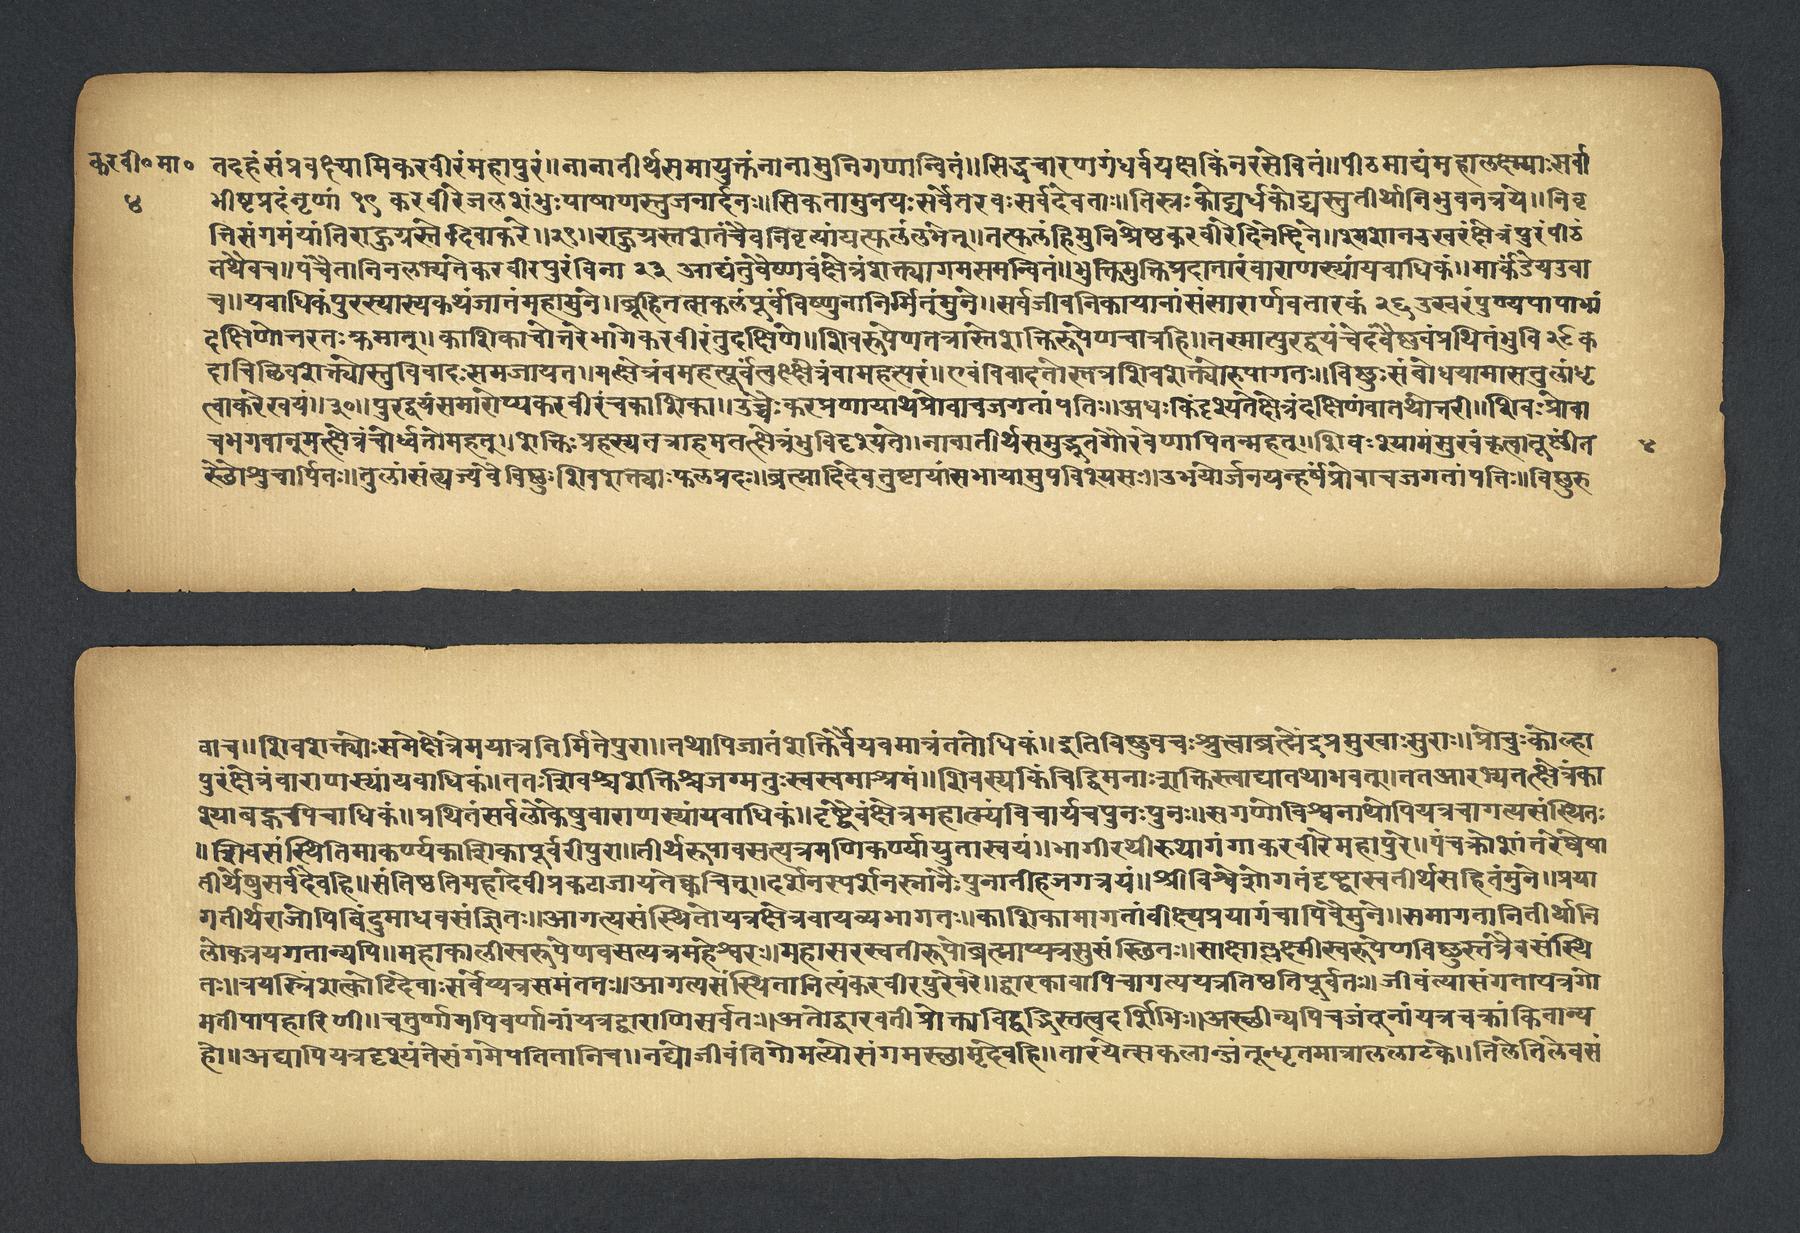 करवी॰मा॰
४
तदहंसंप्रवक्ष्यामिकरवीरंमहापुरं॥नानातीर्थसमायुक्तंनानामुनिगणान्वितं॥सिद्धचारणगंधर्वयक्षकिंनरसेवितं॥पीठमाद्यंमहालक्ष्म्याःसर्वा
भीष्टप्रदंनृणां १९ करवीरेजलशंभुःपाषाणस्तुजनार्दनः॥सिकतामुनयःसर्वेतरवःसर्वदेवताः॥तिस्त्रःकोट्यर्धकोट्यस्तुतीर्थानिभुवनत्रये॥निवृ
त्तिसंगमंयांतिराहुग्रस्तेदिवाकरे॥२१॥राहुग्रस्तशतंचैवनिवृत्यांयत्फलंलभेत्॥तत्फलंहिमुनिश्रेष्ठकरवीरेदिनेदिने॥
तथैवच॥पंचैतानिनलभ्यंतेकरवीरपुरंविना २३ आद्यंतुवैष्णवंक्षेत्रंशक्त्यागमसमन्वितं॥भुक्तिमुक्तिप्रदातारंवाराणस्यांयवाधिकं॥मार्कंडेयउवा
च॥यवाधिकंपुरस्यास्यकथंजातंमहामुने॥ब्रूहितत्सकलंपूर्वंविष्णुनानिर्मितंमुने॥सर्वजीवनिकायानांसंसारार्णवतारकं २६ उत्वरंपुण्यपापाभ्यां
दक्षिणोत्तरतःक्रमात्॥काशिकाचोत्तरेभागेकरवीरंतुदक्षिणे॥शिवरूपेणतत्रास्तेशक्तिरूपेणचात्रहि॥तस्मात्पुरद्वयंचेदंवैष्णवंप्रथितंभुवि २८ क
दाचिच्छिवशक्त्योस्तुविवादःसमजायत॥मक्षेत्रंवमहत्पूर्वंत्वक्षेत्रंवामहत्परं॥एवंविवादतोस्तत्रशिवशक्त्योरुपागतः॥विष्णुःसंबोधयामासतुलांधृ
त्वाकरेस्वयं॥३०॥पुरद्वयंसमारोप्यकरवीरंचकाशिका॥उच्चैःकरप्रणायाथप्रोवाचजगतांपतिः॥अधःकिंदृश्यतेक्षेत्रंदक्षिणंवातथोत्तरी॥शिवःप्रोवा
चभगवान्मत्क्षेत्रंचोर्ध्वतोमहत्॥शक्तिःप्रहस्यतत्राहमतत्क्षेत्रंभुविदृश्यते॥नानातीर्थसमुद्भूतगौरवेणापितन्महत्॥शिवःश्यामंमुखंकृत्वातूष्णींत
४
स्थौशुचार्पितः॥तुलांसंत्यज्यवैविष्णुःशिवशक्त्याःफलप्रदः॥ब्रह्मादिदेवतुष्टायांसभायामुपविश्यसः॥उभयोर्जनयन्हर्षंप्रोवाचजगतांपतिः॥विष्णुरु
वाच॥शिवशक्त्योःसमेक्षेत्रेमयात्रनिर्मितेपुरा॥तथापिजातंशक्तिर्वैयवमात्रंततोधिकं॥इतिविष्णुवचःश्रुत्वाब्रह्मेंद्रप्रमुखाःसुराः॥प्रोचुःकोल्हा
पुरंक्षेत्रंवाराणस्यांयवाधिकं॥ततःशिवश्चशक्तिश्चजग्मतुःस्वस्वमाश्रमं॥शिवस्यकिंचिद्विमनाःशक्तिस्त्वाद्यातथाभवत्॥ततआरभ्यतत्क्षेत्रंका
श्याबहुचपिचाधिकं॥प्रथितंसर्वलोकेषुवाराणस्यांयवाधिकं॥दृष्ट्वैवंक्षेत्रमहात्म्यंविचार्यचपुनःपुनः॥सगणोविश्वनाथोपियत्रचागत्यसंस्थितः
॥शिवसंस्थितिमाकर्ण्यकाशिकापूर्वरीपुरा॥तीर्थरूपावसत्यत्रमणिकर्ण्यायुतास्वयं॥भागीरथीरुथागंगाकरवीरेमहापुरे॥पंचक्रोशांतरेष्वेषा
तीर्थेषुसर्वदैवहि॥संतिष्ठतिमहादेवीप्रकटाजायतेक्वचित्॥दर्शनस्पर्शनस्नानैःपुनातीहजगत्रयं॥श्रीविश्वेशंगतंदृष्ट्वास्वतीर्थसहितंमुने॥प्रया
गतीर्थराजोपिबिंदुमाधवसंज्ञितः॥आगत्यसंस्थितोयत्रक्षेत्रवायव्यभागतः॥काशिकामागतांवीक्ष्यप्रयागंचापिवैमुने॥समागतानितीर्थानि
लोकत्रयगतान्यपि॥महाकालीस्वरूपेणवसत्यत्रमहेश्वरः॥महासरस्वतीरूपोब्रह्माप्यत्रसुसंस्थितः॥साक्षाल्लक्ष्मीस्वरूपेणविष्णुस्तत्रैवसंस्थि
तः॥त्रयस्त्रिंशत्कोटिदेवाःसर्वेप्यत्रसमंततः॥आगत्यसंस्थितानित्यंकरवीरपुरेवरे॥द्वारकावापिचागत्ययत्रतिष्ठतिपूर्वतः॥जीवंत्यासंगतायत्रगो
मतीपापहारिणी॥चतुर्णामपिवर्णानांयत्रद्वाराणिसर्वतः॥अतोद्वारवतीप्रोक्ताविद्वद्भिस्तत्वदर्शिभिः॥अस्थीन्यपिचजंतूनांयत्रचक्रांकितान्य
हो॥अद्यापियत्रदृश्यंतेसंगमेपतितानिच॥नद्योजीवंतिगोमत्योसंगमस्थामृदेवहि॥तारयेत्सकलान्जंतून्धृतमात्राललाटके॥तिलेतिलेवसं